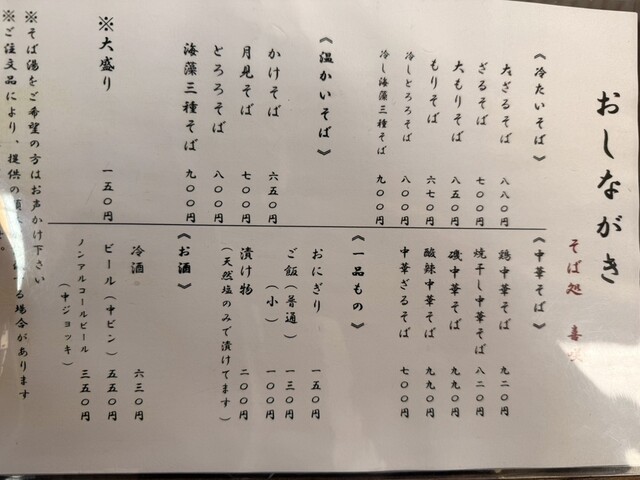 おしながき
そば処 喜
《冷たいそば》
大ざるそば 八八〇円
ざるそば 七〇〇円
大もりそば 八五〇円
もりそば 六七〇円
冷しとろろそば 八〇〇円
冷し海藻三種そば 九〇〇円
《温かいそば》
かけそば 六五〇円
月見そば 七〇〇円
とろろそば 八〇〇円
海藻三種そば 九〇〇円
※大盛り 一五〇円
《中華そば》
鶏中華そば 九二〇円
焼干し中華そば 八二〇円
磯中華そば 九九〇円
酸辣中華そば 九九〇円
中華ざるそば 七〇〇円
《一品もの》
おにぎり 一五〇円
ご飯(普通) 一三〇円
(小) 一〇〇円
漬け物 二〇〇円
(天然塩のみで漬けてます)
《お酒》
冷酒 六三〇円
ビール(中ビン) 五五〇円
ノンアルコールビール 三五〇円
(中ジョッキ)
※そば湯をご希望の方はお声かけ下さい
※ご注文品により、提供の順 る場合があります